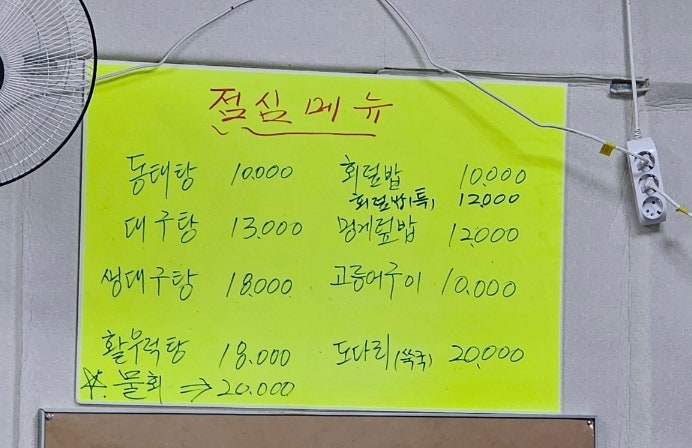 점심메뉴
동태탕 10.000 회덮밥 10.000
회덮밥(특) 12.000
대구탕 13.000 멍게덮밥 12.000
생대구탕 18.000 고등어구이 10.000
활우럭탕 18.000 도다리(쑥국) 20.000
☆. 물회 ⇒ 20.000